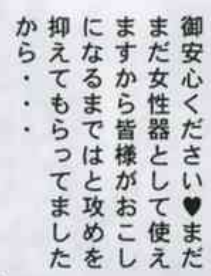 御安心ください♥まだ
まだ女性器として使え
ますから皆様がおこし
になるまではと攻めを
抑えてもらってました
から・・・